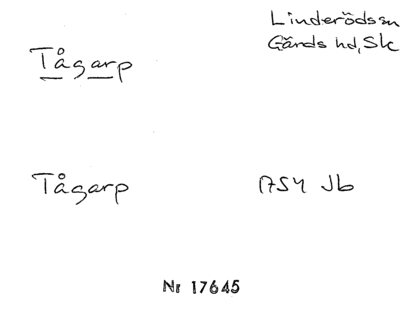 Linderöds sn
Gärds hd, Sk
Tågarp
Tågarp
1754 Jb
Nr 17645